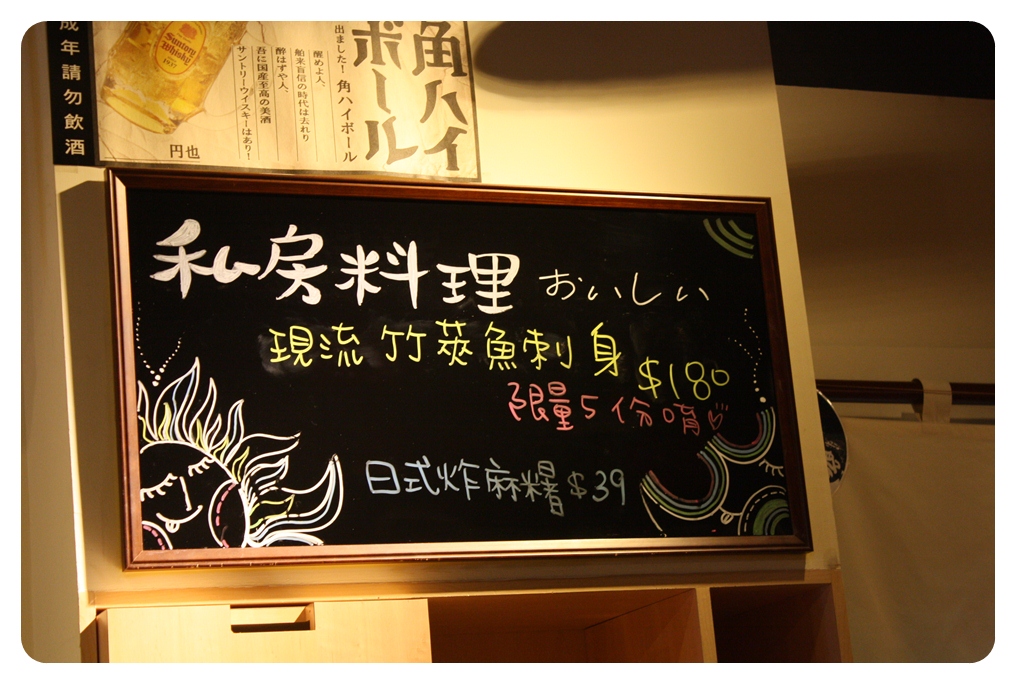 成年請勿飲酒
角ハイ
ボール
出ました！角ハイボール
醒めよ人、
舶来盲信の時代は去れり
酔はずや人、
吾に国産至高の美酒
サントリーウイスキーはあり！
円也
Suntory
Whisky
1937
私房料理 おいしい
現流竹莢魚刺身 $180
限量5份唷
日式炸麻糬 $39